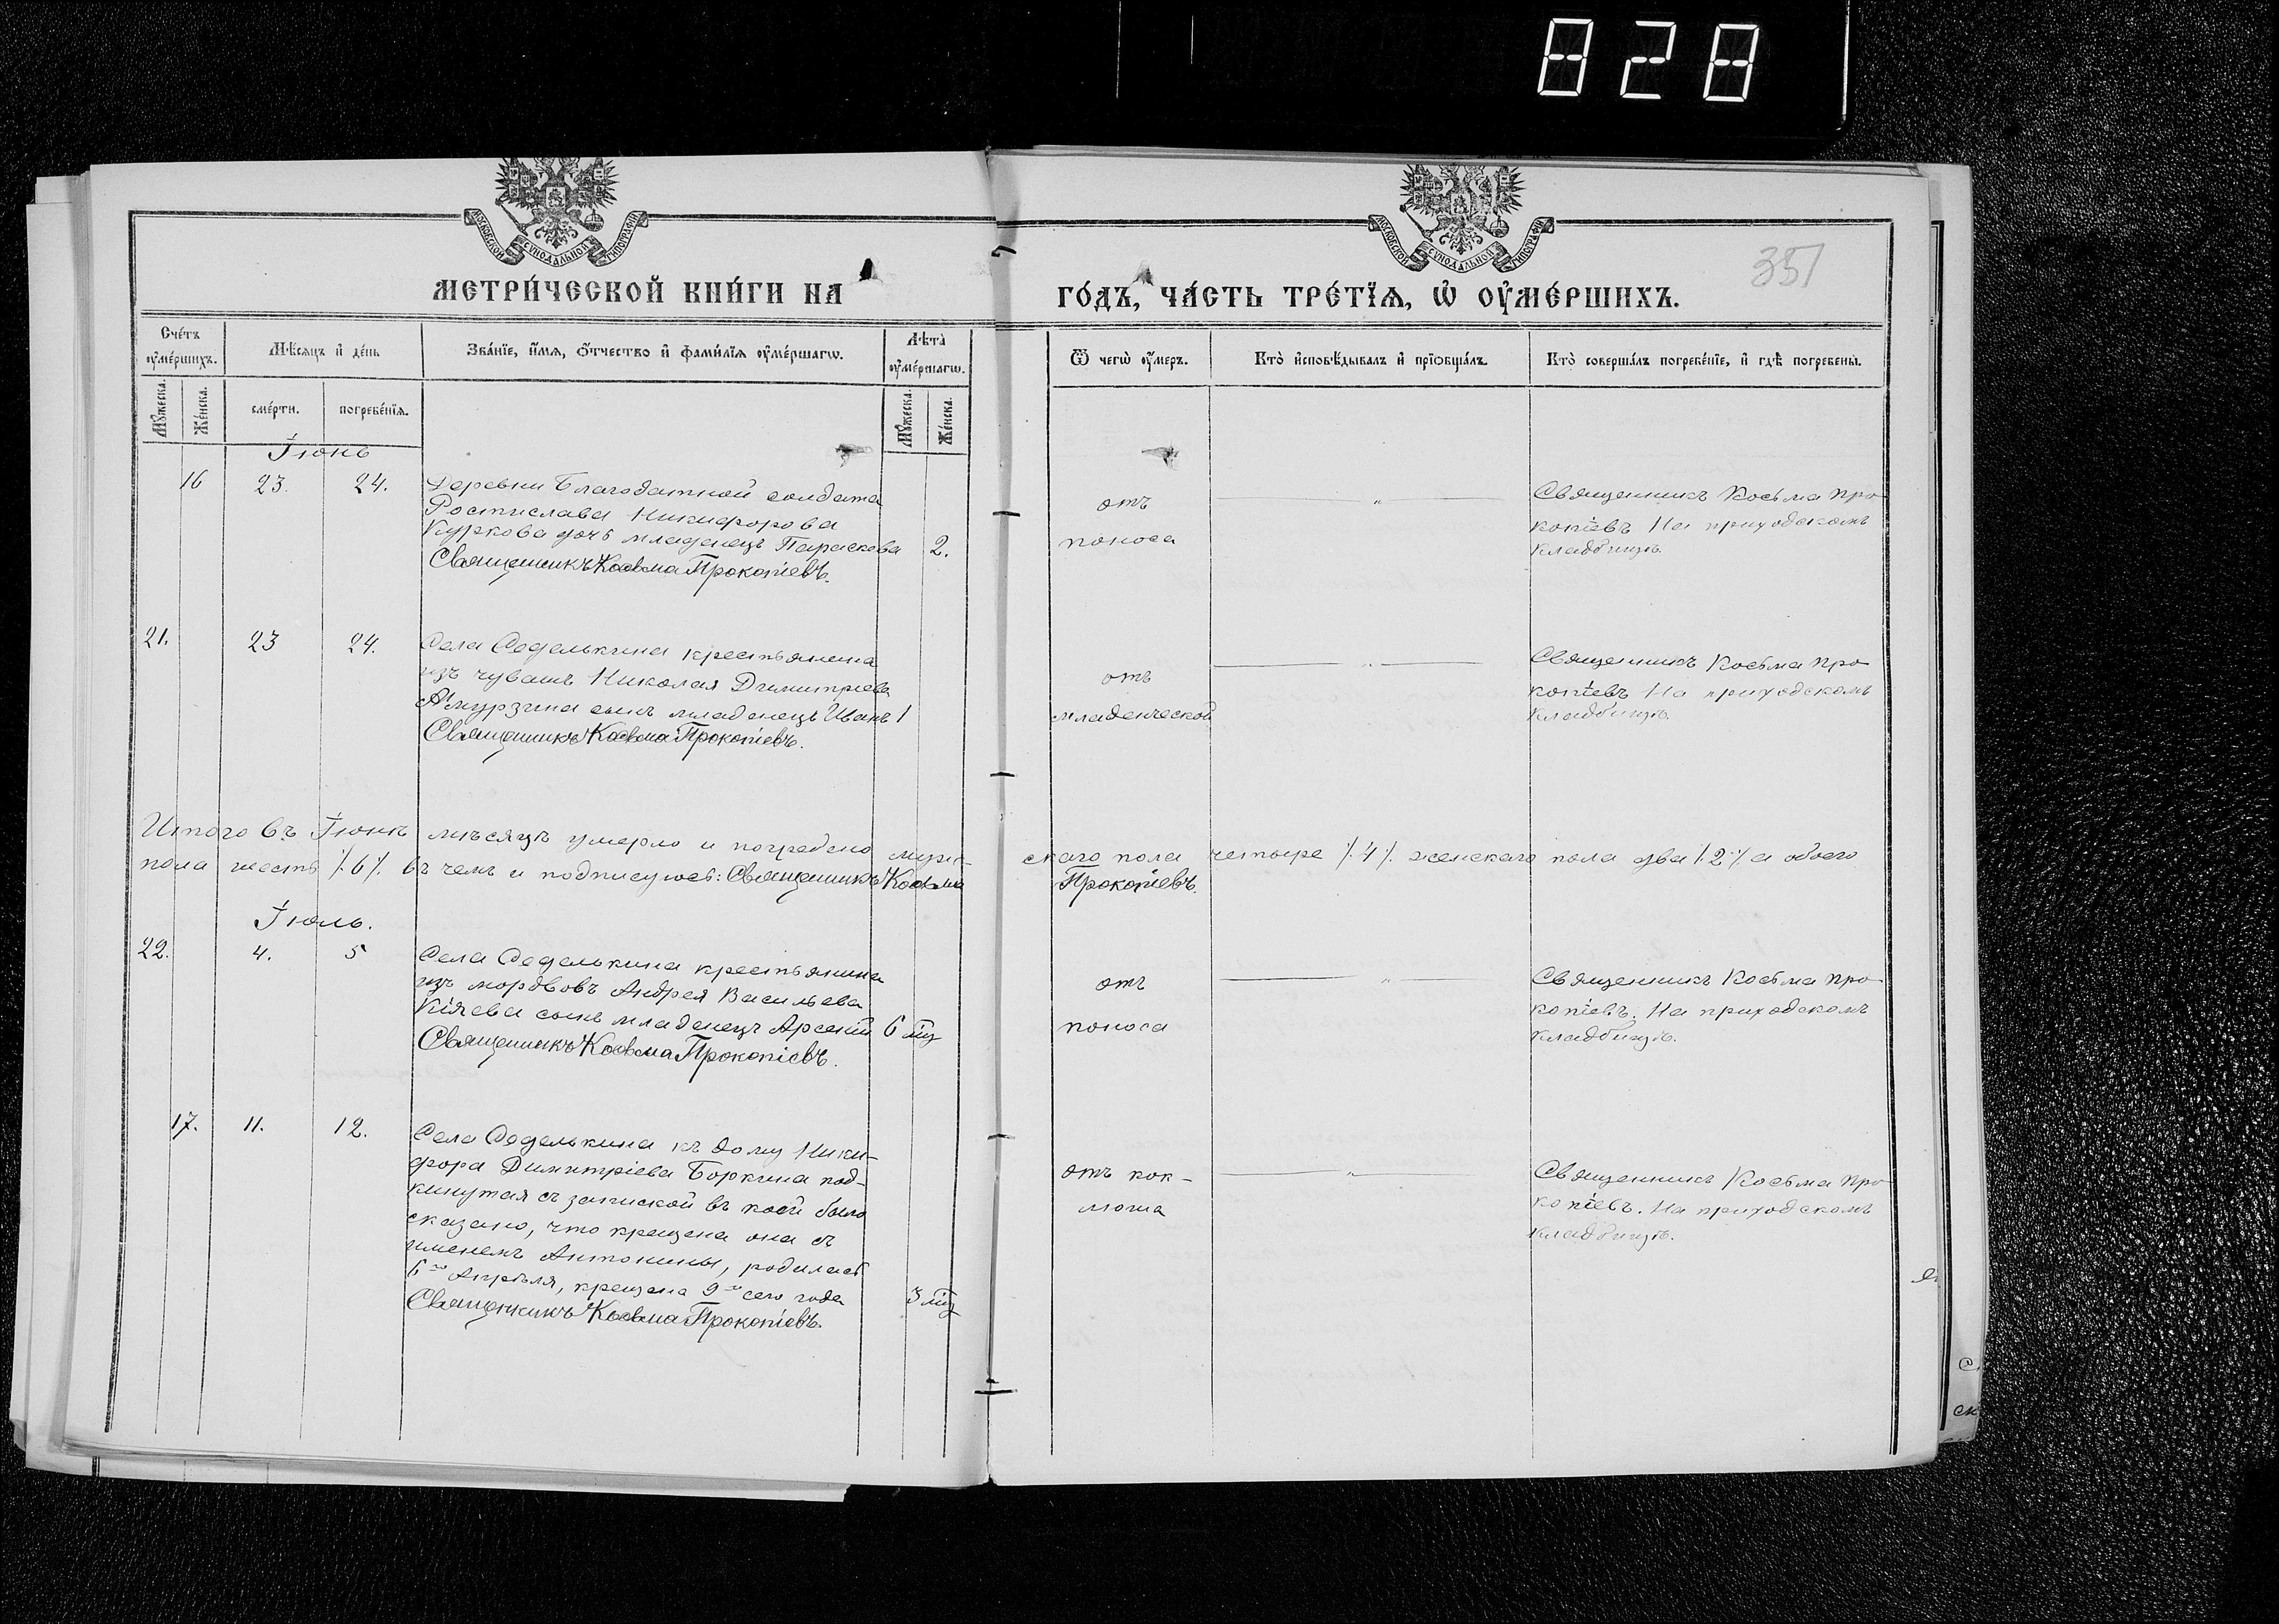 828
МОСКОВСКОЙ СѴНОДАЛЬНОЙ ТИПОГРАФІИ
МОСКОВСКОЙ СѴНОДАЛЬНОЙ ТИПОГРАФІИ
351
МЕТРИ́ЧЕСКОЙ КНИ́ГИ НА
ГО́ДЪ, ЧА́СТЬ ТРЕ́ТЇѦ, Ѡ҆ ОУ҆МЕ́РШИХЪ.
Сче́тъ оу҆ме́ршихъ.
Мѣ́сяцъ и҆ де́нь
Зва́нїе, и҆́мѧ, ѻ҆́тчество и҆ фами́лїѧ оу҆ме́ршагѡ.
Лѣта̀ оу҆ме́ршагѡ.
Ѿ чегѡ̀ оу҆́меръ.
Кто̀ и҆сповѣ́дывалъ и҆ прїѡбща́лъ.
Кто̀ соверша́лъ погребе́нїе, и҆ гдѣ̀ погребены̀.
Мꙋ́жеска.
Же́нска.
сме́рти.
погребе́нїѧ.
Мꙋ́жеска.
Же́нска.
Іюнь
16 23. 24. Деревни Благодатной солдата
Ростислава Никифорова
Куркова дочь младенецъ Параскева 2.
Священникъ Косьма Прокопіевъ.
отъ
поноса
Священникъ Косьма Про-
копіевъ На приходскомъ
кладбищѣ.
21. 23 24. Села Седелькина крестьянина
изъ чувашъ Николая Димитріева
Амурзина сынъ младенецъ Иванъ 1
Священникъ Косьма Прокопіевъ.
отъ
младенческой
Священникъ Косьма Про-
копіевъ На приходскомъ
кладбищѣ.
Итого въ Іюнѣ мѣсяцѣ умерло и погребено муже-скаго пола четыре /.4/. женскаго пола два /.2./ а обоего
пола шесть /.6/. въ чемъ и подписуюсь: Священникъ Косьма Прокопіевъ.
Іюль.
22. 4. 5 Села Седелькина крестьянина
изъ мордвовъ Андрея Васильева
Кіяева сынъ младенецъ Арсеній 6 мц
Священникъ Косьма Прокопіевъ.
отъ
поноса
Священникъ Косьма Про-
копіевъ. На приходскомъ
кладбищѣ.
17. 11. 12. Села Седелькина къ дому Ники-
фора Димитріева Боркина под-
кинутая съ запиской въ коей было
сказано, что крещена она съ
именемъ Антонины, родилась
6го Апрѣля, крещена 9го сего года 3 мц
Священникъ Косьма Прокопіевъ.
отъ кок-
люша
Священникъ Косьма Про-
копіевъ. На приходскомъ
кладбищѣ.